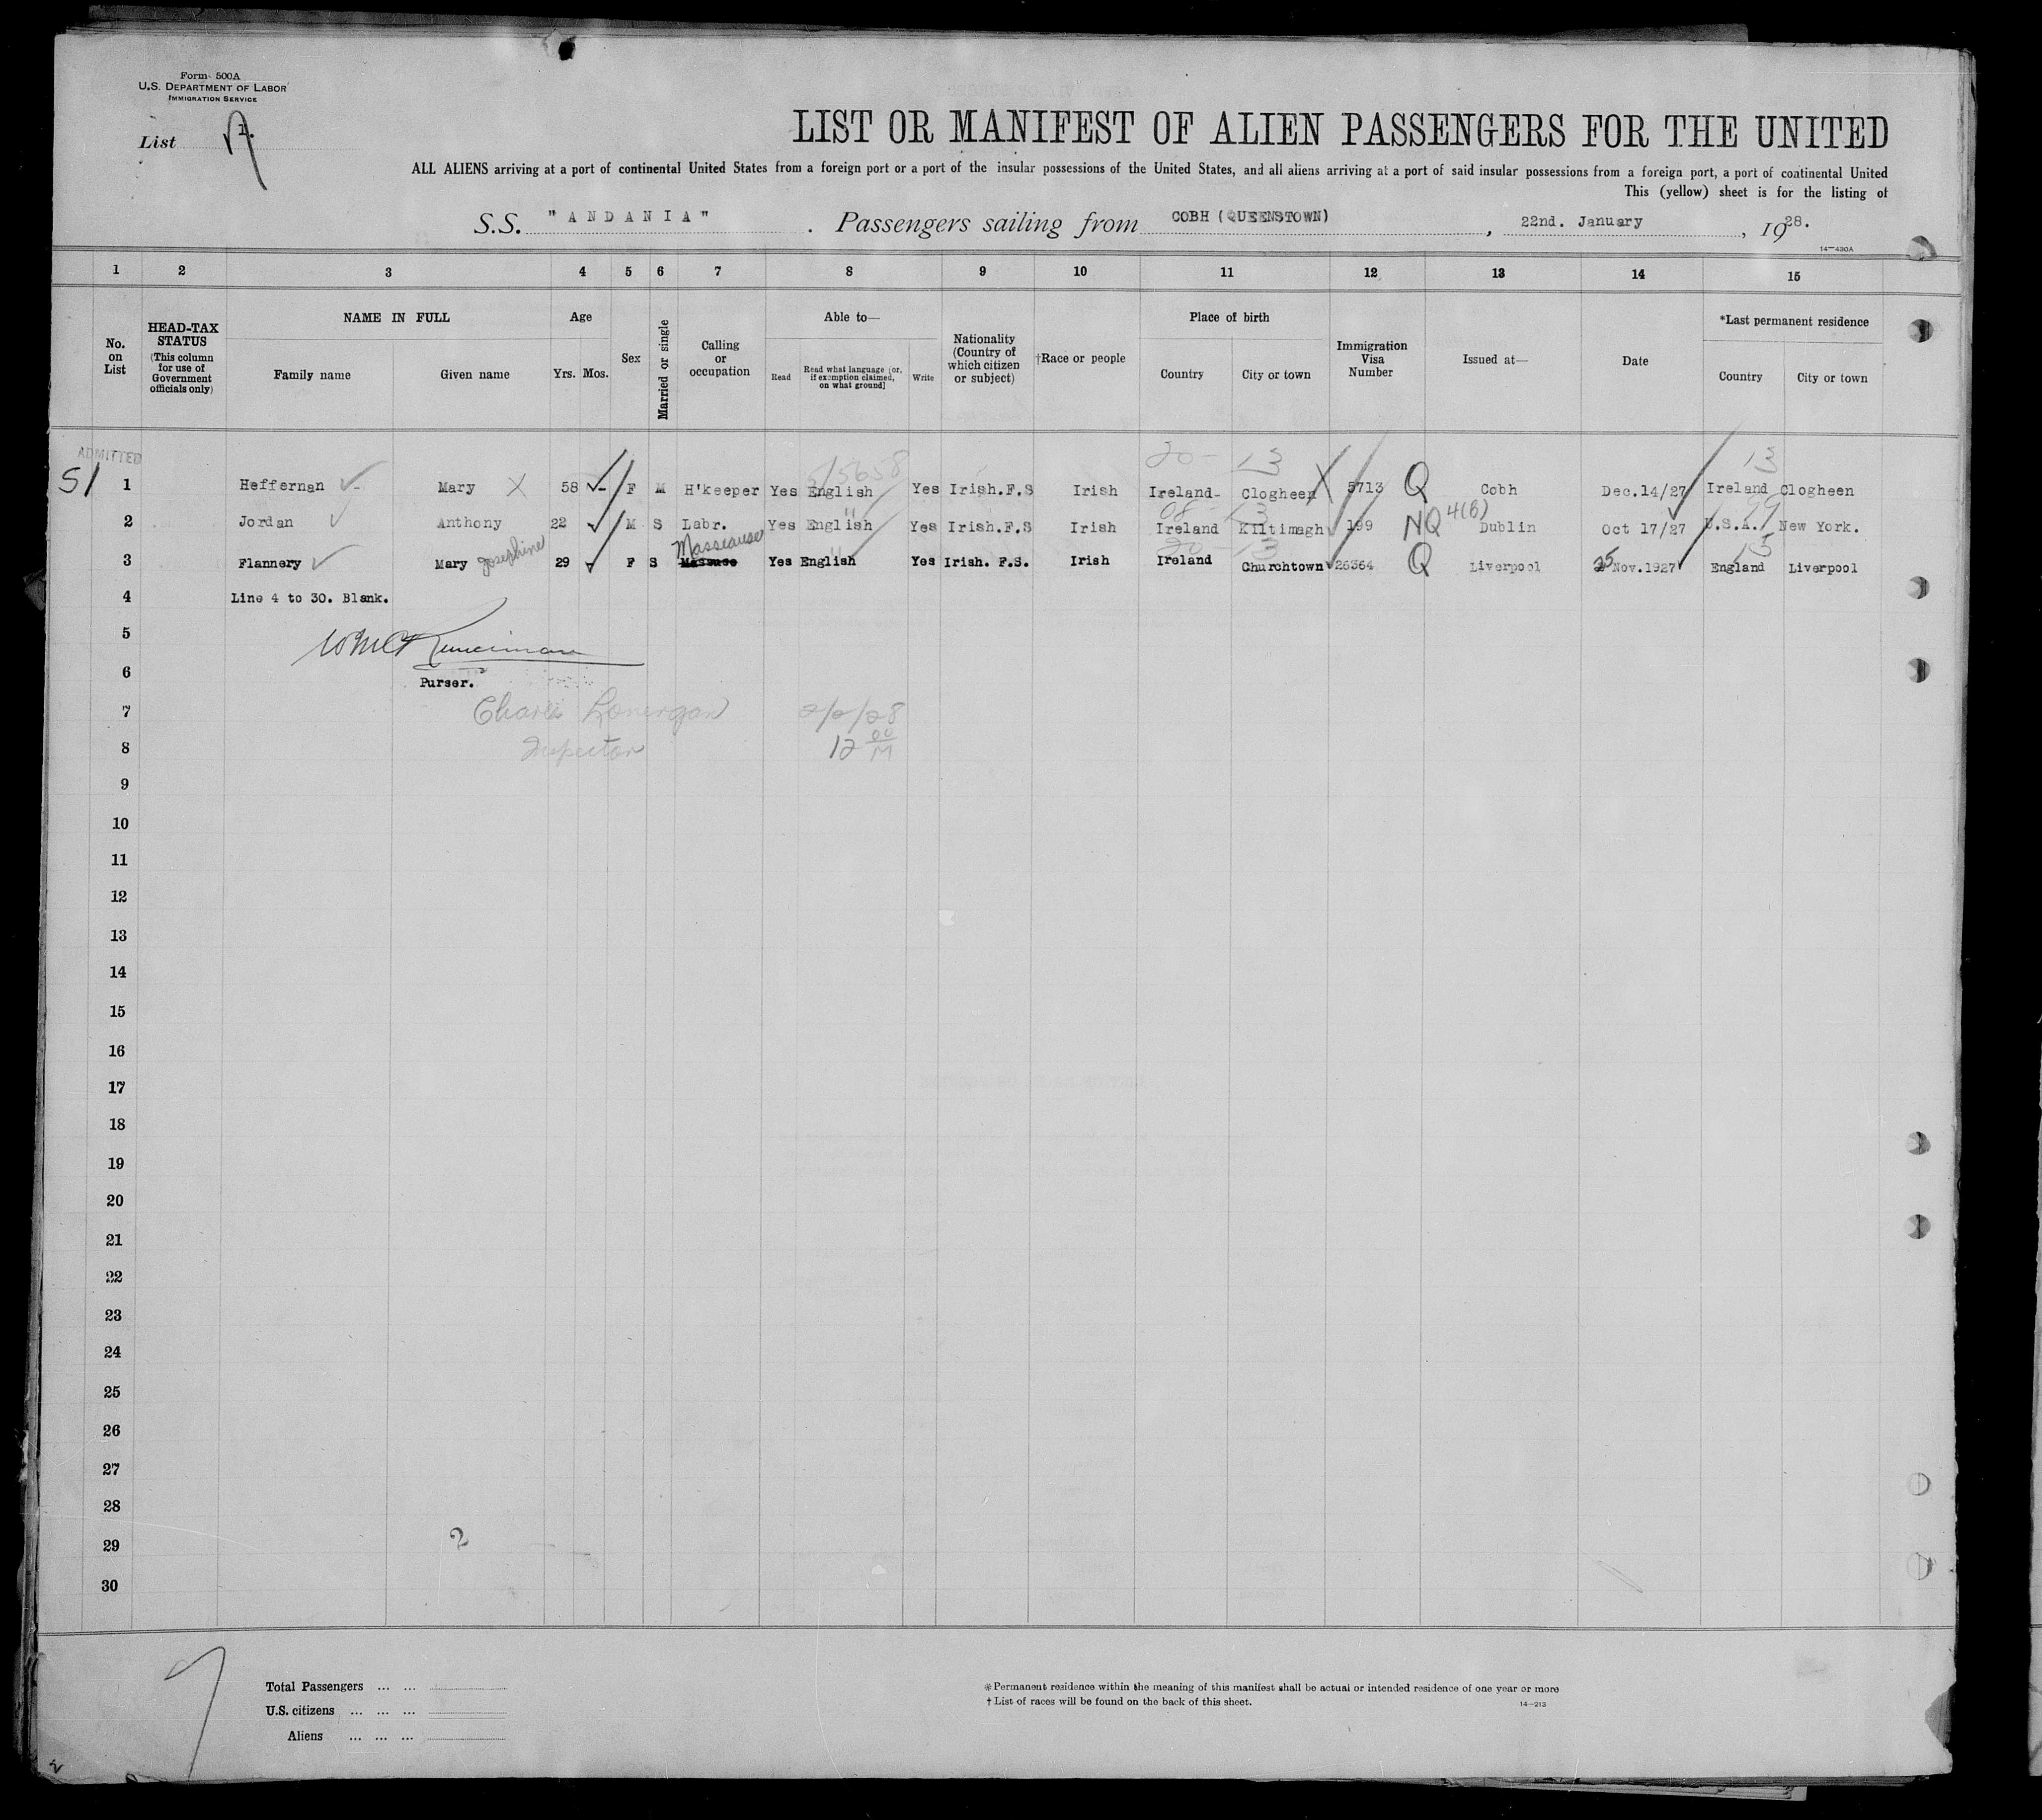 Form 500A
U.S. DEPARTMENT OF LABOR
IMMIGRATION SERVICE
List
LIST OR MANIFEST OF ALIEN PASSENGERS FOR THE UNITED
ALL ALIENS arriving at a port of continental United States from a foreign port or a port of the insular possessions of the United States, and all aliens arriving at a port of said insular possessions from a foreign port, a port of continental United
This (yellow) sheet is for the listing of
S.S. "ANDANIA" . Passengers sailing from COBH (QUEENSTOWN) , 22nd. January , 1928.
14—430A
1 2 3 4 5 6 7 8 9 10 11 12 13 14 15
No. on List
HEAD-TAX STATUS (This column for use of Government officials only)
NAME IN FULL
Family name Given name
Age
Yrs. Mos.
Sex
Married or single
Calling or occupation
Able to—
Read Read what language [or, if exemption claimed, on what ground] Write
Nationality (Country of which citizen or subject)
†Race or people
Place of birth
Country City or town
Immigration Visa Number
Issued at—
Date
*Last permanent residence
Country City or town
ADMITTED
20- 13 13
51 1 Heffernan Mary X 58 - F M H'keeper Yes English Yes Irish.F.S Irish Ireland- Clogheen 5713 Q Cobh Dec.14/27 Ireland Clogheen
08- 13 4(b) 99
2 Jordan Anthony 22 M S Labr. Yes English Yes Irish.F.S Irish Ireland Kiltimagh 199 NQ Dublin Oct 17/27 U.S.A. New York.
Masseause 20- 13 15
3 Flannery Mary Josephine 29 F S Yes English Yes Irish. F.S. Irish Ireland Churchtown 26364 Q Liverpool 25 Nov.1927 England Liverpool
4 Line 4 to 30. Blank.
5
6 Purser.
7 Charles Lonergan 2/2/28
8 Inspector 12 00 M
9
10
11
12
13
14
15
16
17
18
19
20
21
22
23
24
25
26
27
28
29 2
30
Total Passengers ... ...
U.S. citizens ... ... ...
Aliens ... ... ...
* Permanent residence within the meaning of this manifest shall be actual or intended residence of one year or more
† List of races will be found on the back of this sheet.
14—213